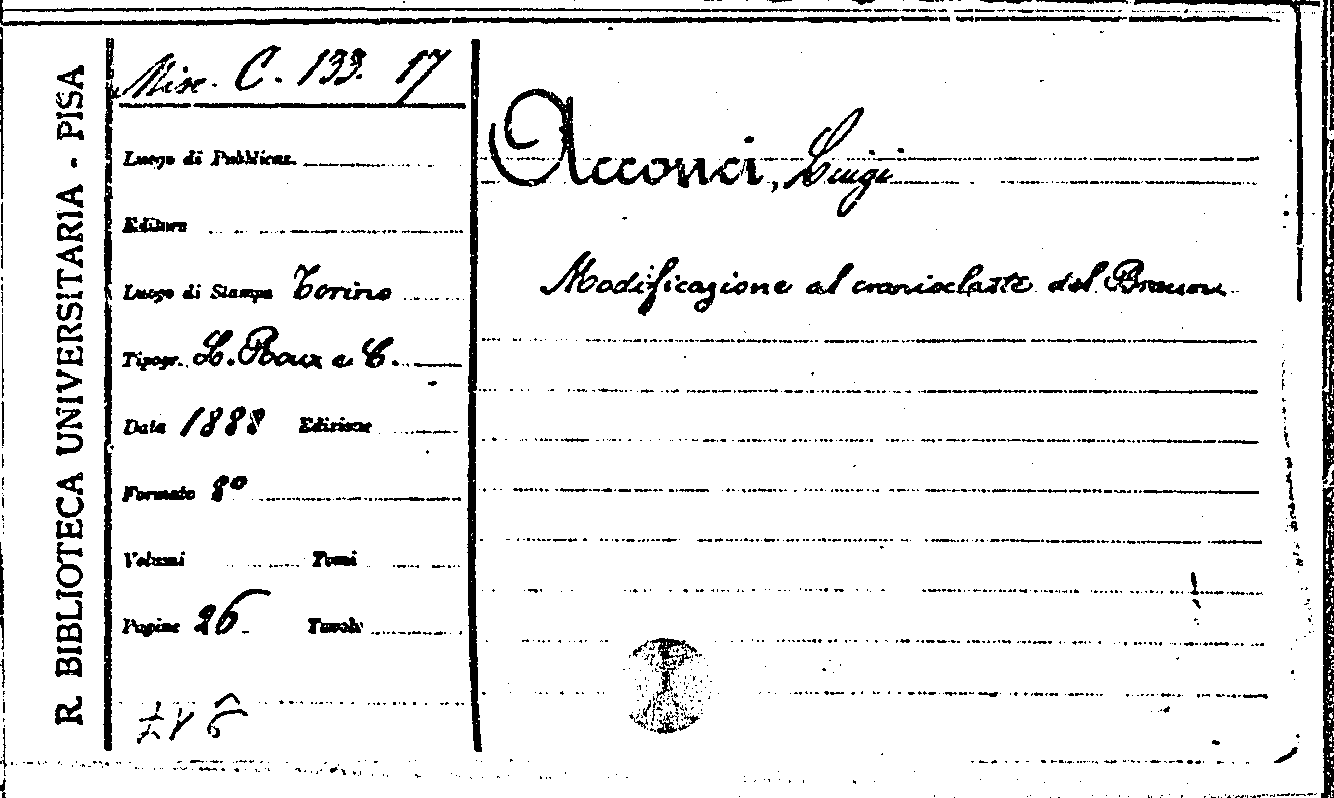 R. BIBLIOTECA UNIVERSITARIA - PISA
Misc. C. 133. 17
Luogo di Pubblicaz.
Editore
Luogo di Stampa Torino
Tipogr. L. Roux e C.
Data 1888 Edizione
Formato 8º
Volumi Tomi
Pagine 26 Tavole
Acconci, Luigi
Modificazione al cranioclaste del Braun